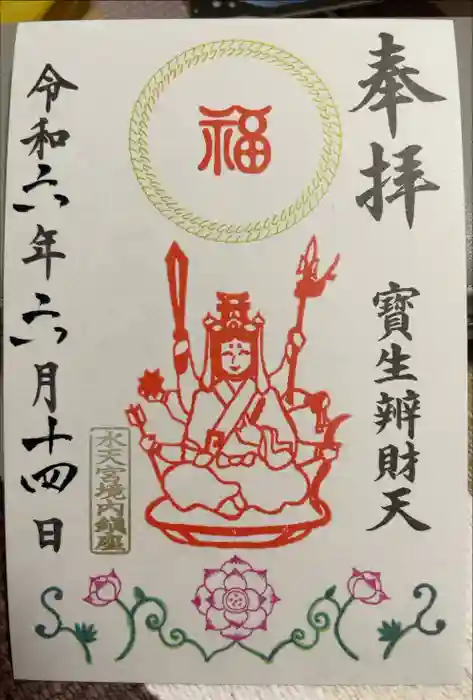 奉拝
寶生辨財天
福
水天宮境内鎮座
令和六年六月十四日